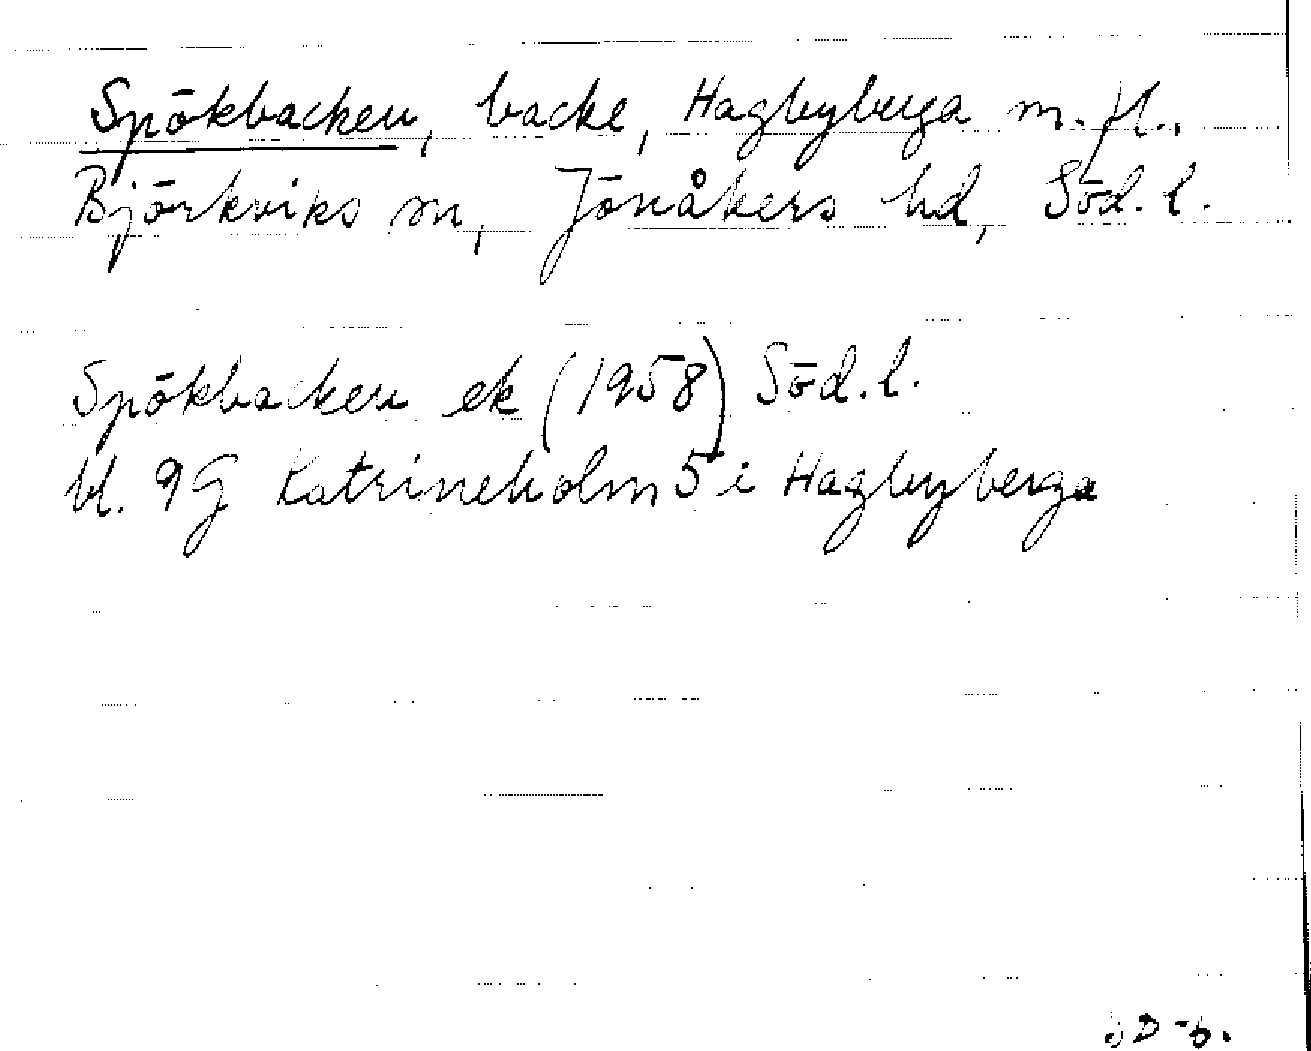 Spökbacken, backe, Hagbyberga m. fl.,
Björkviks sn, Jönåkers hd, Söd. l.
Spökbacken ek (1958) Söd. l.
bl. 9G Katrineholm 5 i Hagbyberga